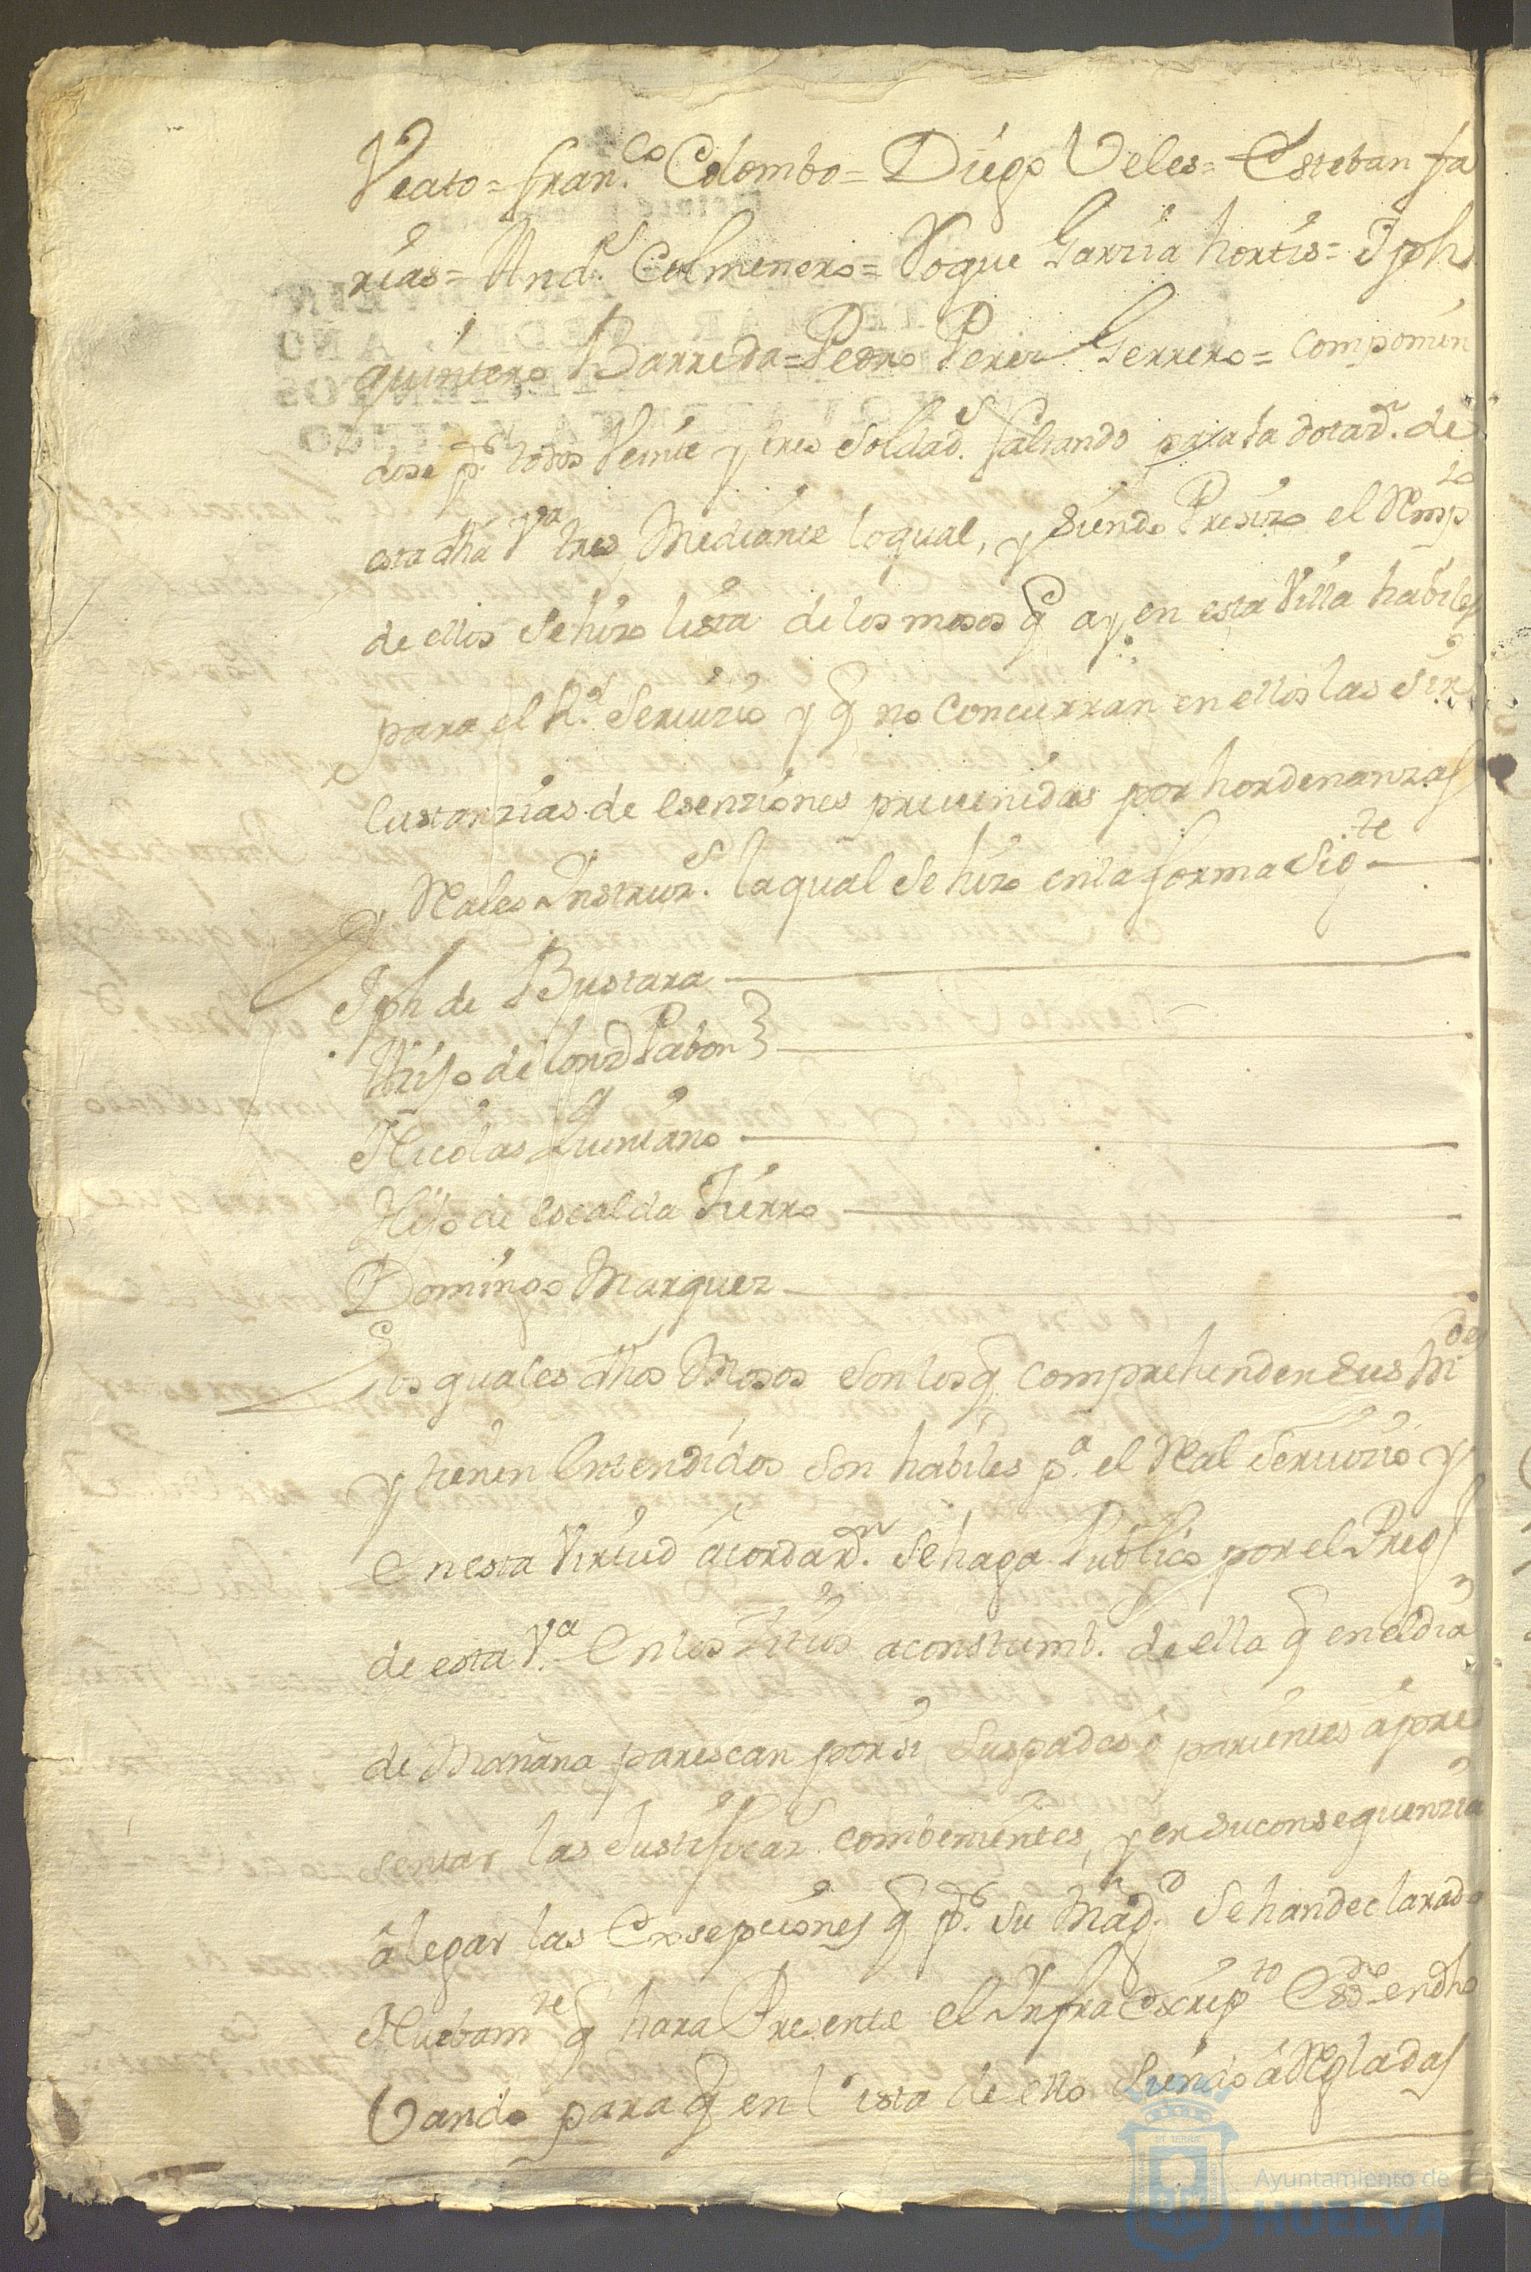 Veato = Fran.co Colombo = Diego Veles = Esteban fa
rias = And.s Colmenero = Roque Garzia hortis = Jph
quintero Barreda = Pedro Perez Gerrero = componien
dose p.r todos Veinte y tres Soldad.s faltando para la dotaz.n de
esta dha V.a tres, Mediante loqual, y siendo Presizo el Rmp.to
de ellos se hizo lista de los mosos q ay en esta Villa habiles
para el R.l Servizio y q no concurran en ellos las Sir
custanzias de esenziones prevenidas por hordenanzas
y Reales Instruz.s laqual se hizo en la forma sig.te
Jph de Bustara
Hijo de Lonz Pabon
Nicolas Quintano
Hijo de escalda Fierro
Domingo Marquez
Los quales dhos Mosos son los q comprehenden sus M.des
y tienen Entendidos son habiles p.a el Real Servizio y
En esta Virtud acordar.n se haga Publico por el Preg.o
de esta V.a En los Sitios aconstumb. de ella q en el dia
de Mañana parescan por si, sus pades o parientes a pre
sentar las Justificaz.s combenientes, y en su consequenzia
alegar las Exsepciones q p.r su Mag.d se han declarado
Nuebam.te q hara Presente el Infraescrip.to Es.no en dho
Vando para q en Vista de ello siendo aRegladas
Ayuntamiento de
HUELVA